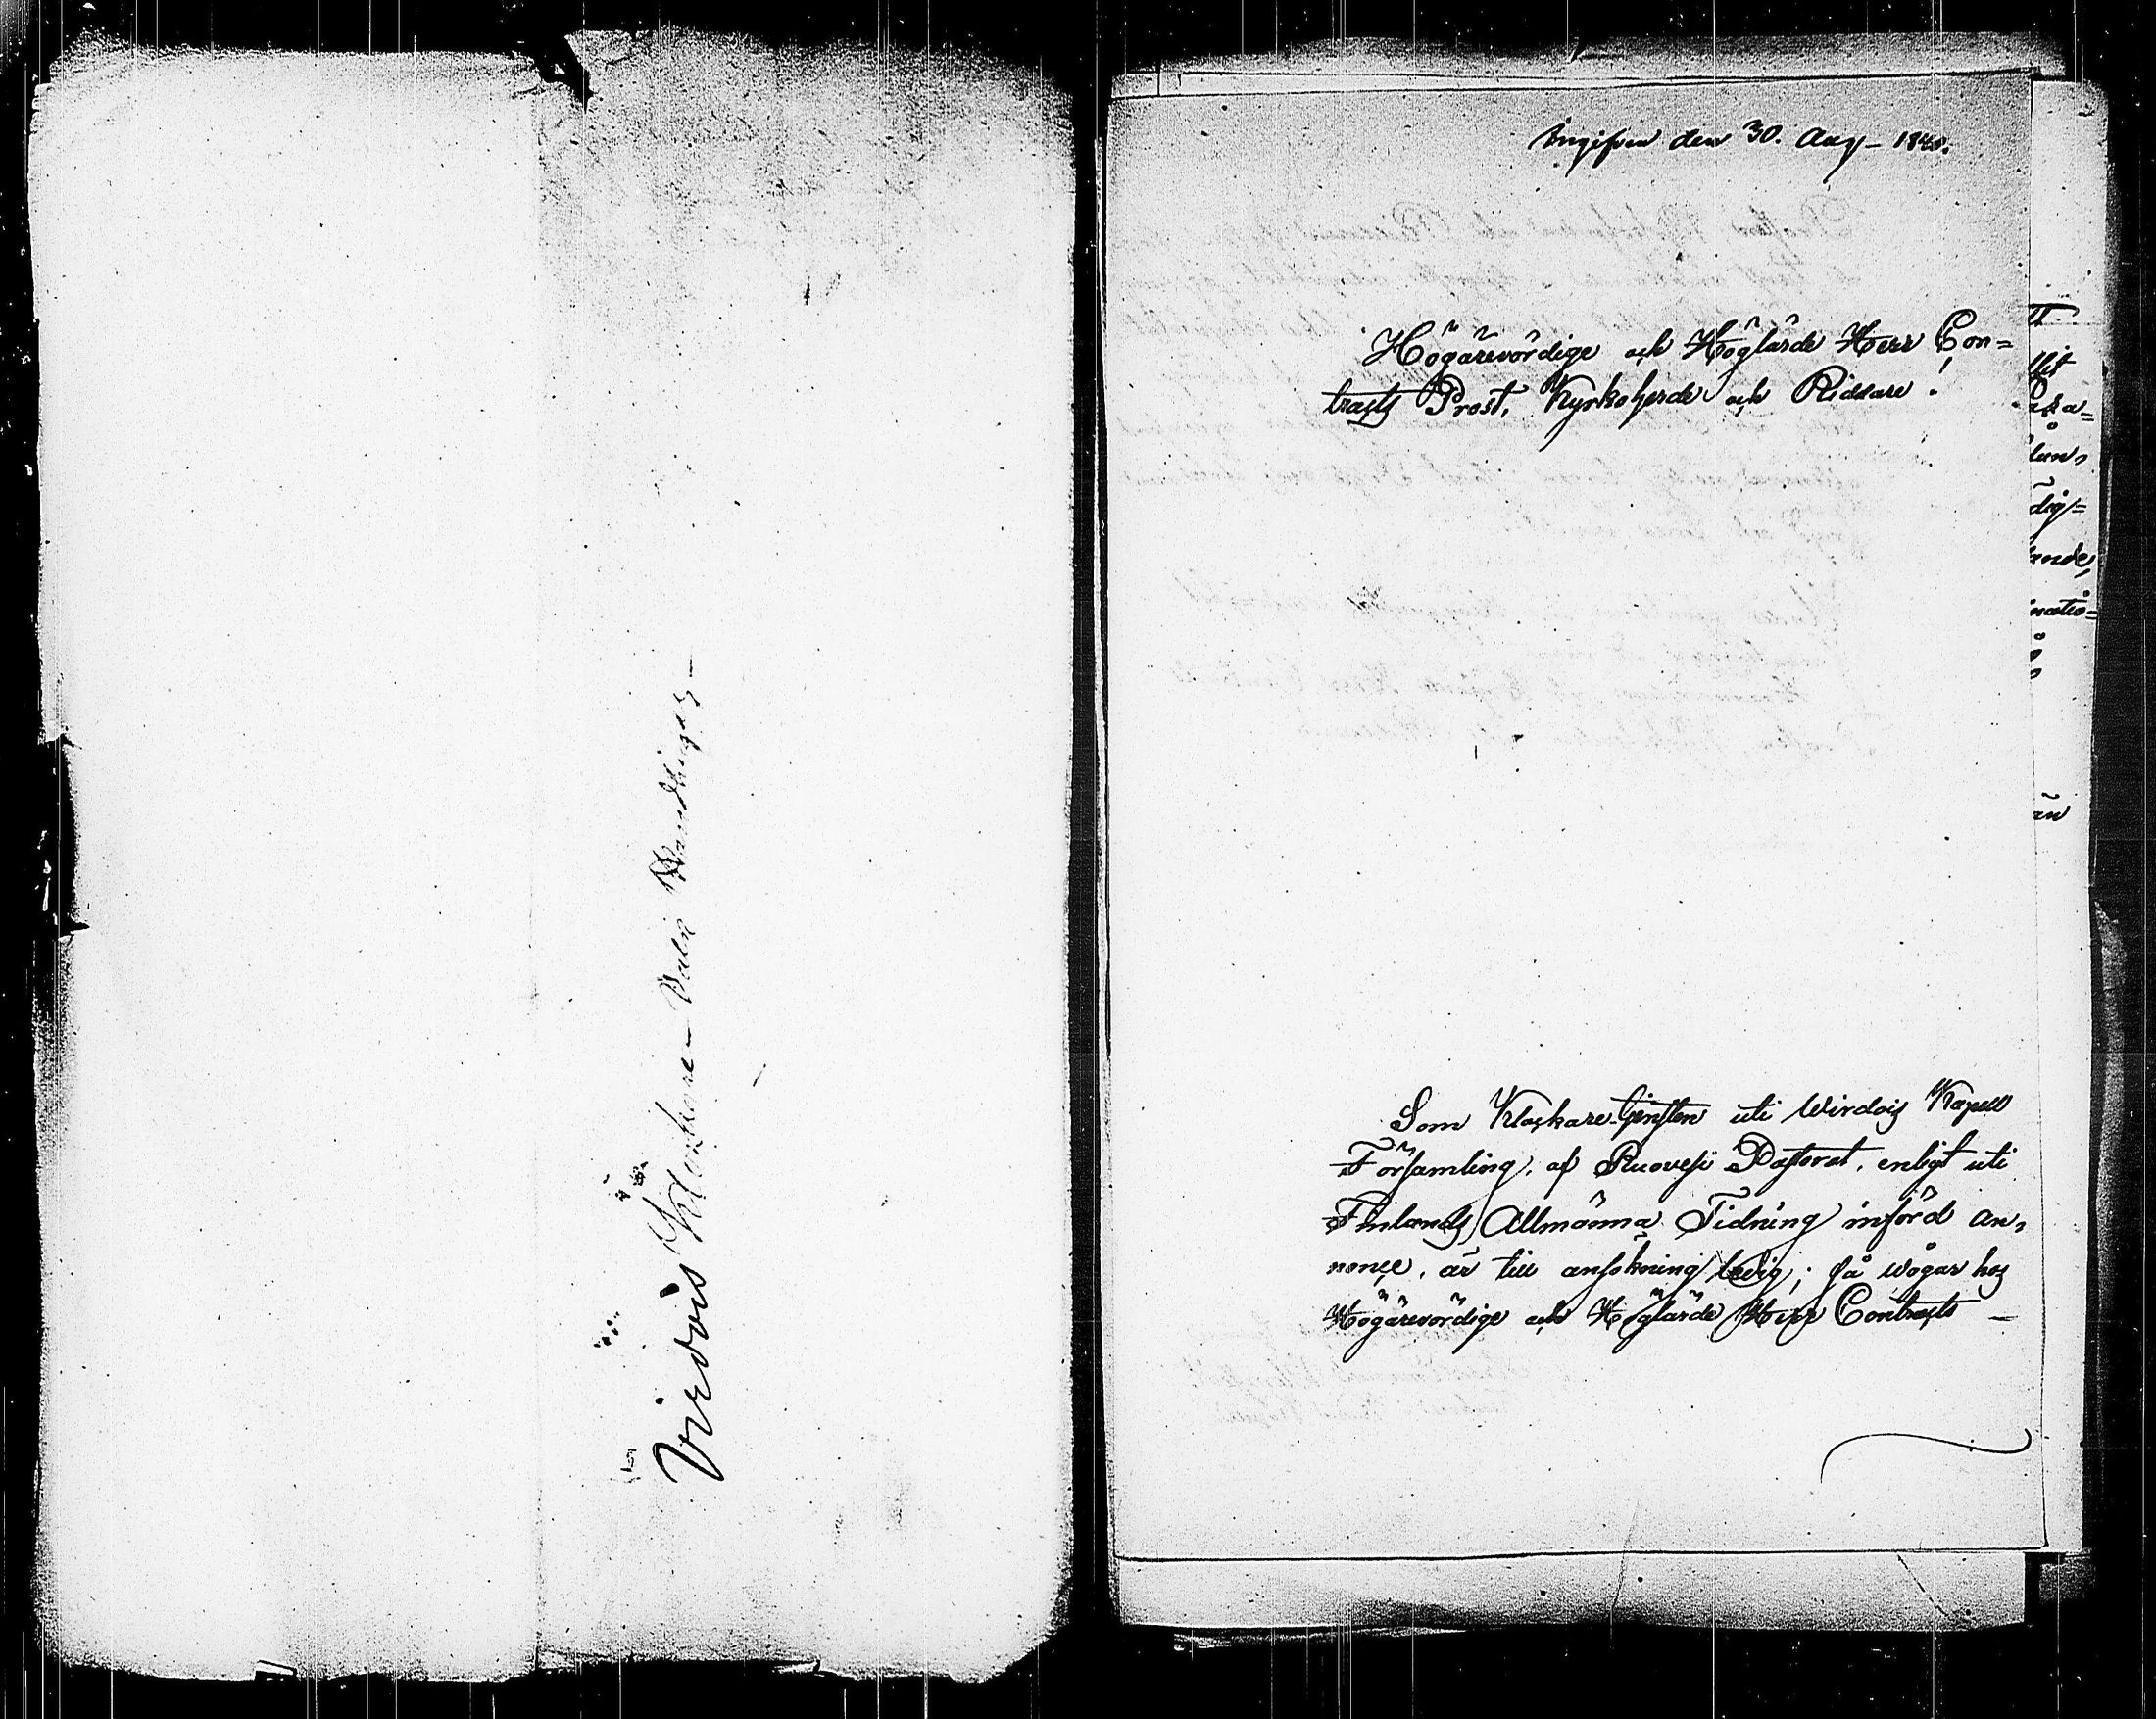 Virdois Klockare-Vals Handlingar—
Ingifven den 30. Aug— 1840.
Högärevördige och Höglärde Herr Con=
tracts Prost, Kyrkoherde och Riddare!
Som Klockare-tjensten uti Wirdois Kapell
Församling, af Ruovesi Pastorat, enligt uti
Finlands Allmänna Tidning införd an,
nonce, är till ansökning ledig; så wågar hos
Högärevördige och Höglärde Herr Contracts —